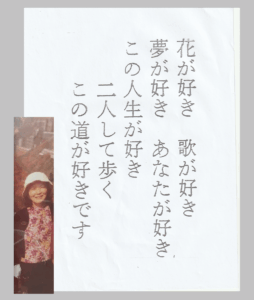 花が好き　歌が好き
夢が好き　あなたが好き
この人生が好き
二人して歩く
この道が好きです